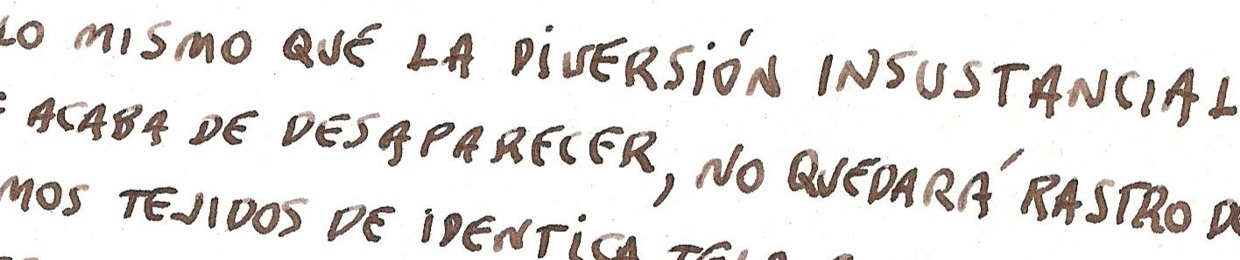 LO MISMO QUE LA DIVERSIÓN INSUSTANCIAL
ACABA DE DESAPARECER, NO QUEDARÁ RASTRO DE
MOS TEJIDOS DE IDENTICA